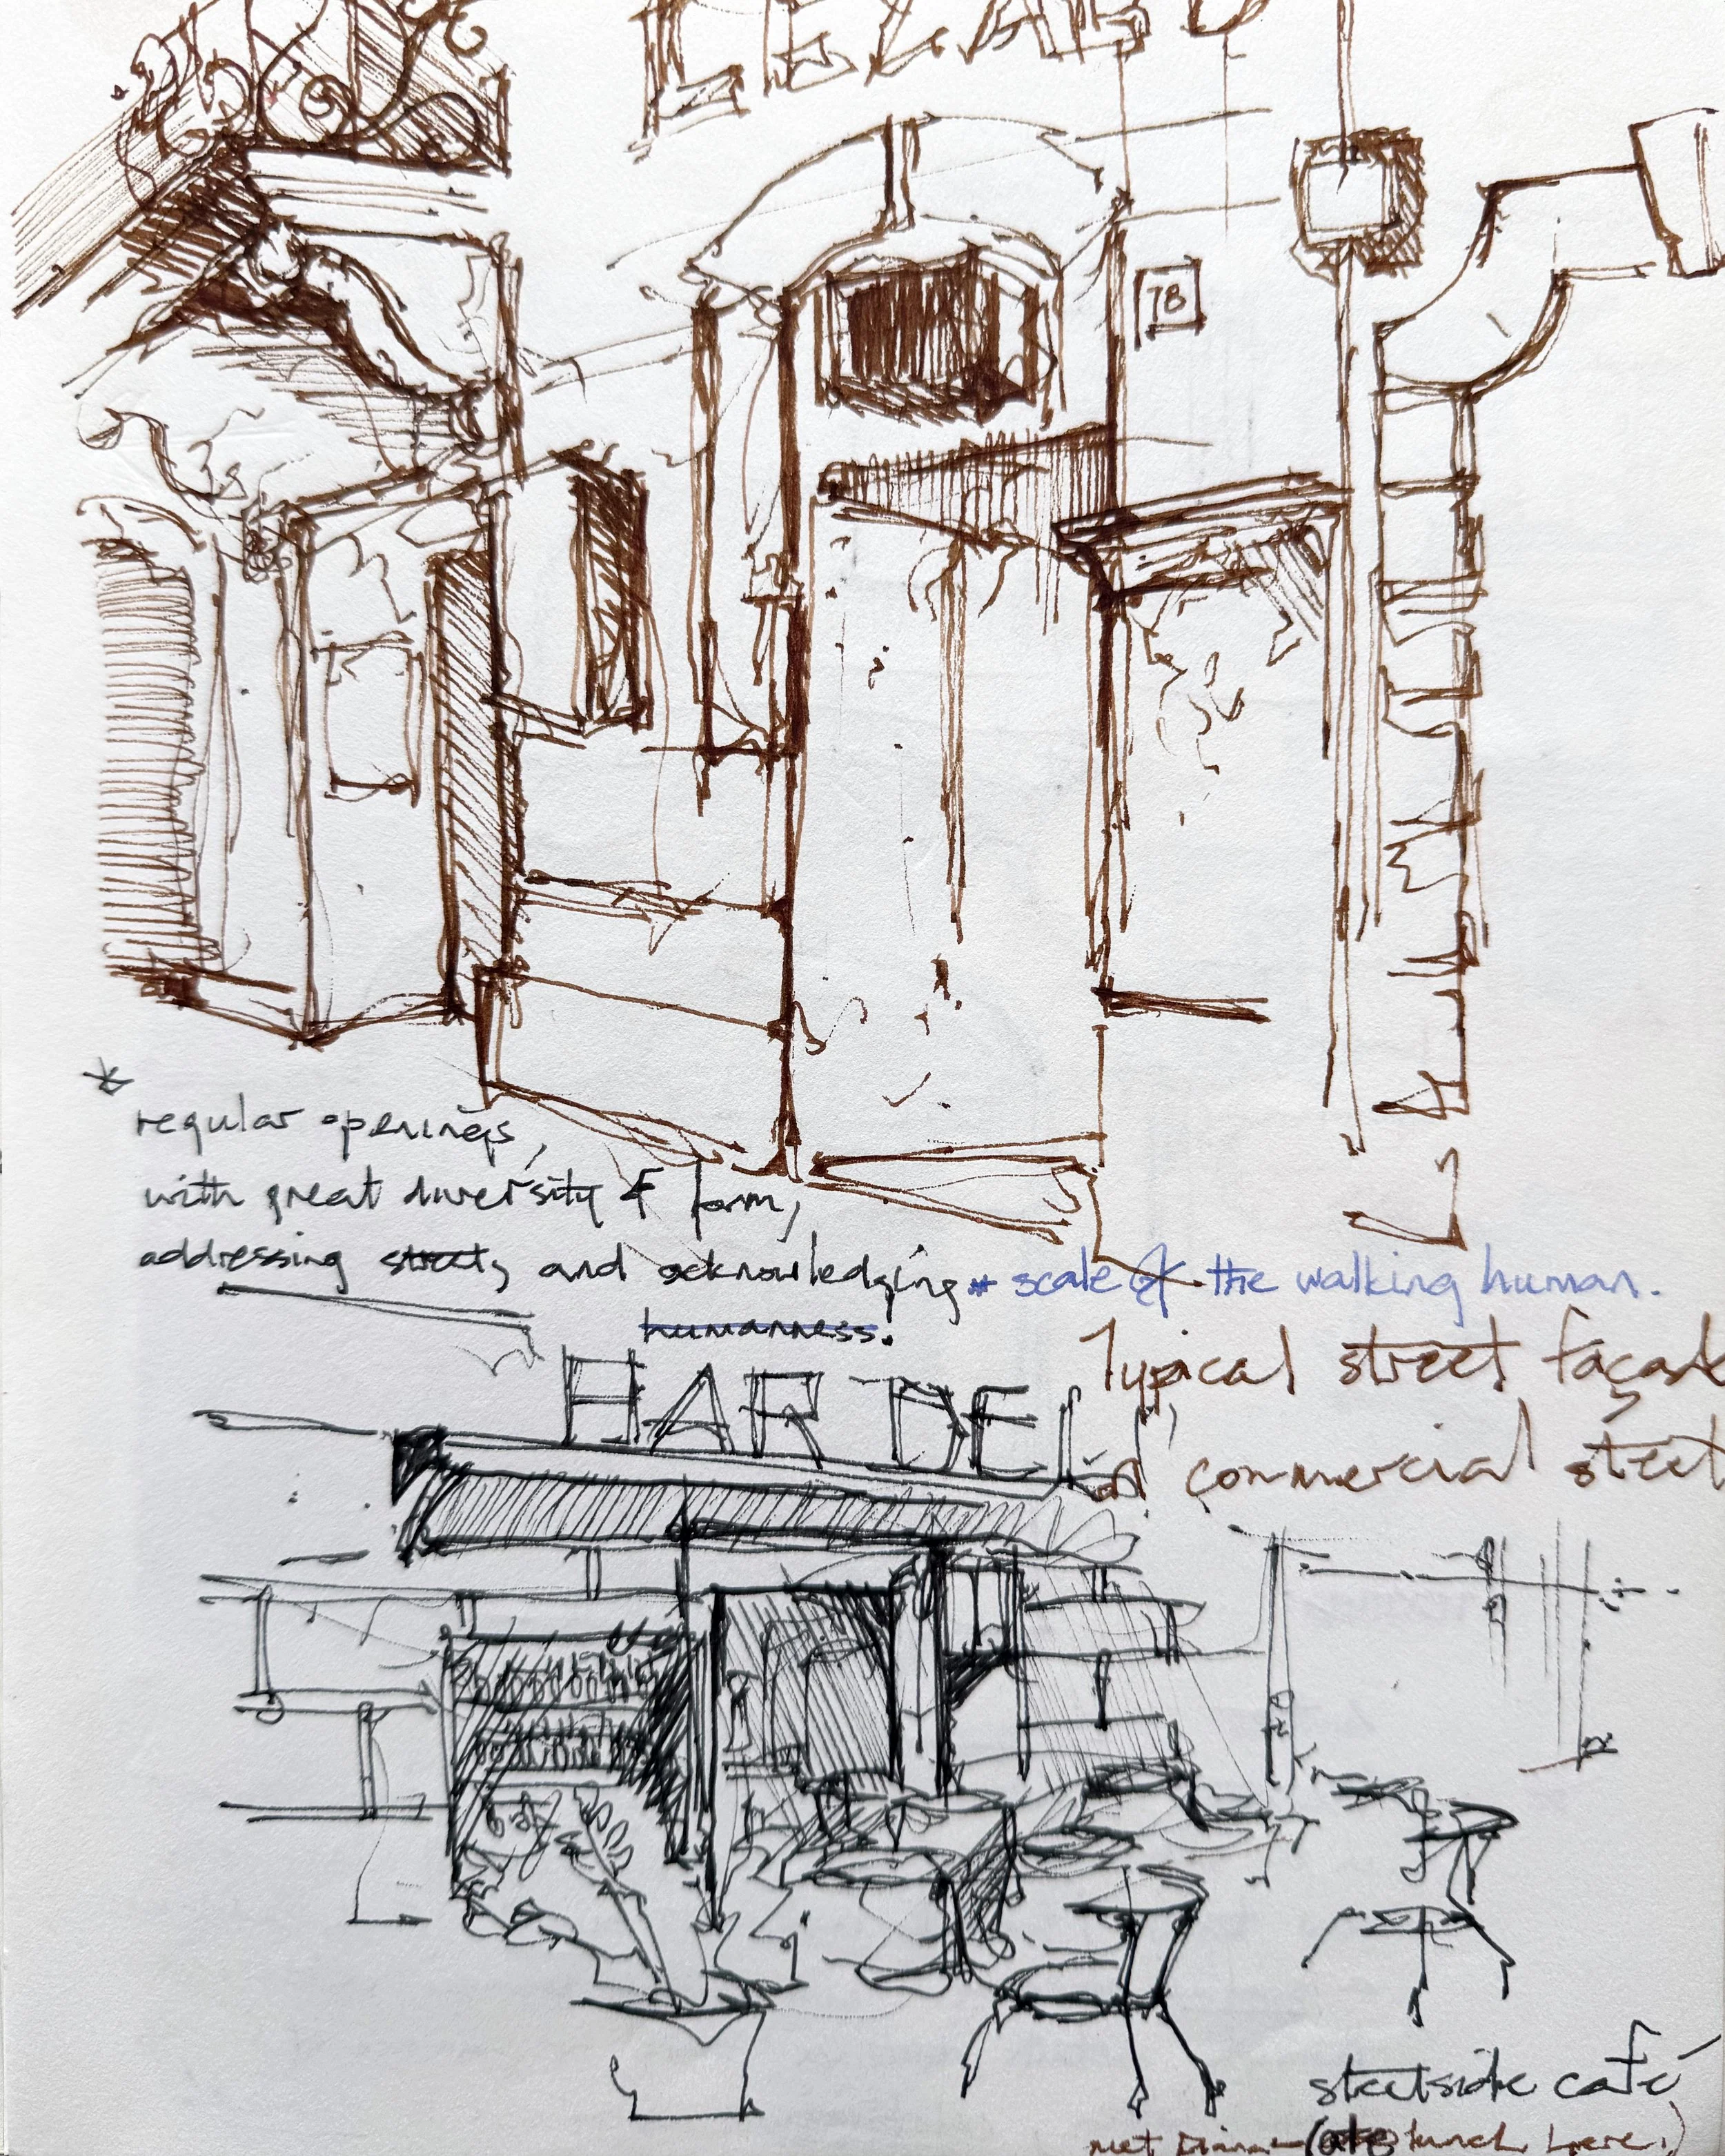 78
regular openings,
with great diversity of form,
addressing street, and acknowledging scale of the walking human.
humanness.
Typical street façade
commercial street
HAR DELI
streetside café
met (ate lunch here.)